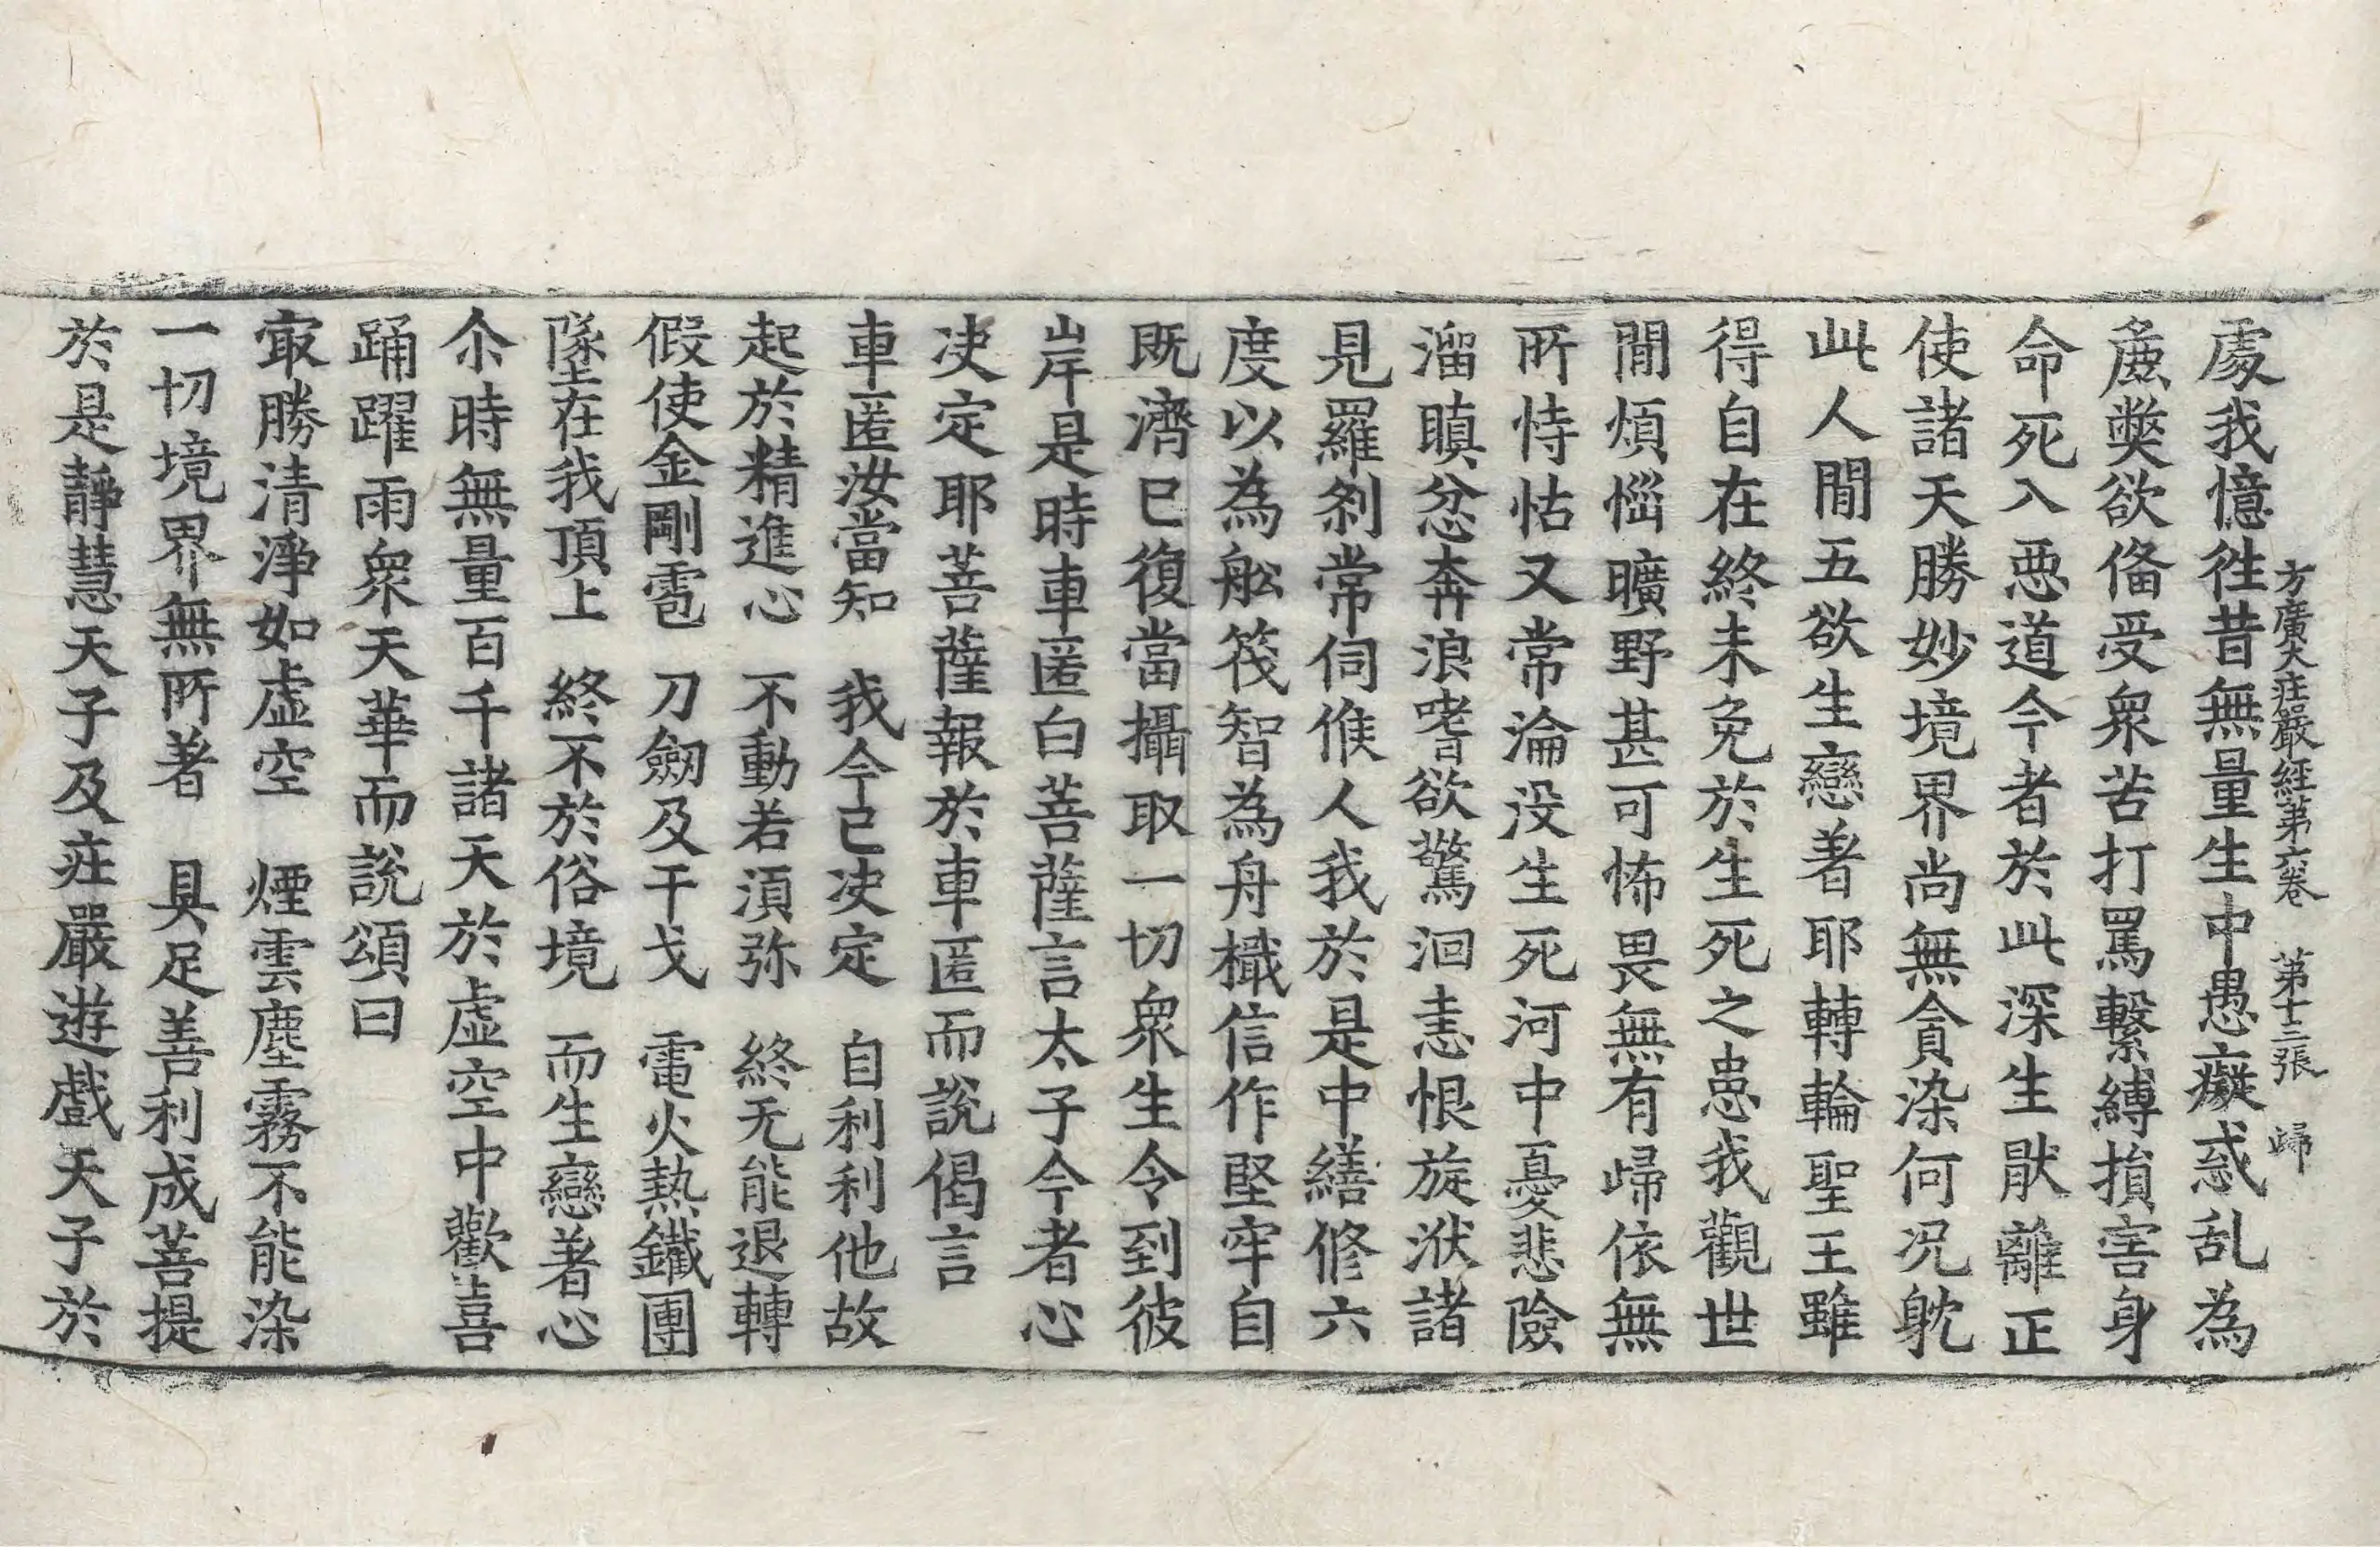 方廣大莊嚴經第六卷　第十三張　歸
處我憶徃昔無量生中愚癡惑乱為
麁弊欲俻受衆苦打罵繫縛損害身
命死入惡道今者於此深生猒離正
使諸天勝妙境界尚無貪染何况躭
此人閒五欲生戀著耶轉輪聖王雖
得自在終未免於生死之患我觀世
閒煩惱曠野甚可怖畏無有歸依無
所恃怙又常淪没生死河中憂悲險
溜瞋忿奔浪嗜欲驚洄恚恨旋洑諸
見羅刹常伺候人我於是中繕修六
度以為舩筏智為舟檝信作堅牢自
既濟已復當攝取一切衆生令到彼
岸是時車匿白菩薩言太子今者心
决定耶菩薩報於車匿而說偈言
車匿汝當知　我今已决定　自利利他故
起於精進心　不動若湏弥　終无能退轉
假使金剛雹　刀劒及干戈　電火熱鐵團
墜在我頂上　終不於俗境　而生戀著心
尒時無量百千諸天於虛空中歡喜
踊躍雨衆天華而說頌曰
㝡勝清淨如虛空　煙雲塵霧不能染
一切境界無所著　具足善利成菩提
於是靜慧天子及莊嚴遊戲天子於